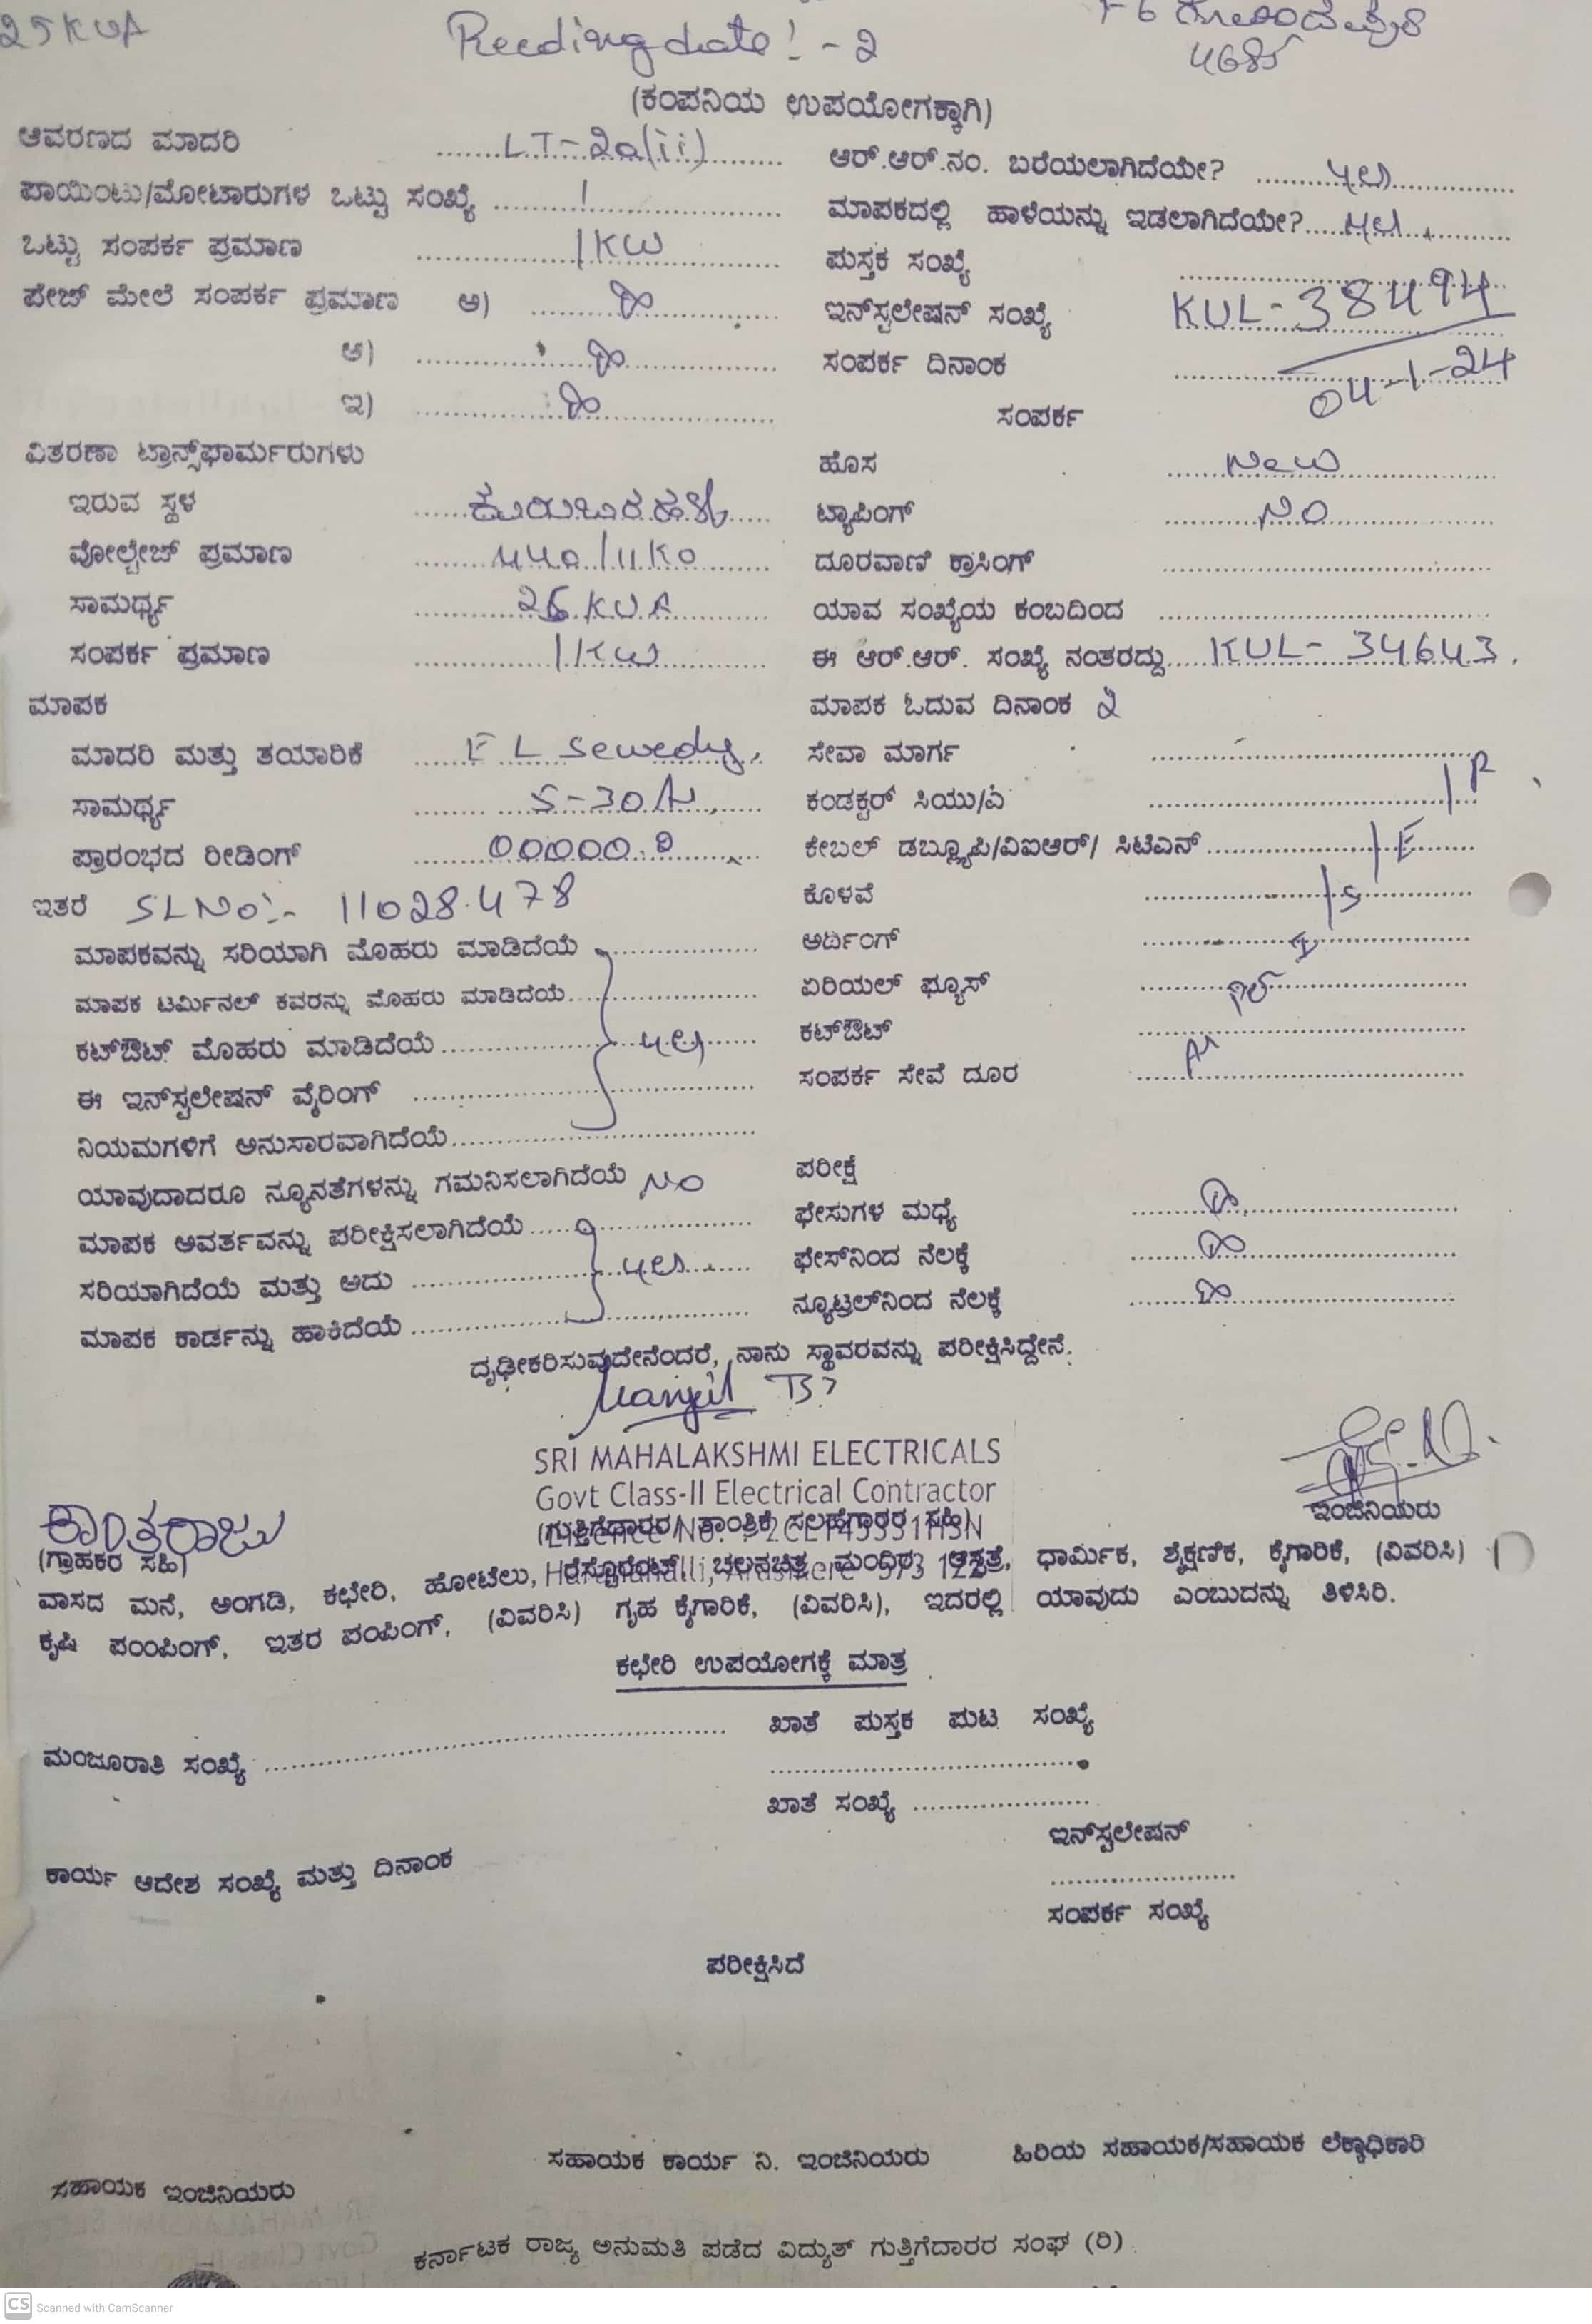 25KVA
Reeding date! - 2
4685
(ಕಂಪನಿಯ ಉಪಯೋಗಕ್ಕಾಗಿ)
ಆವರಣದ ಮಾದರಿ LT-2a(ii)
ಆರ್.ಆರ್.ನಂ. ಬರೆಯಲಾಗಿದೆಯೇ? yes
ಪಾಯಿಂಟು/ಮೋಟಾರುಗಳ ಒಟ್ಟು ಸಂಖ್ಯೆ 1
ಮಾಪಕದಲ್ಲಿ ಹಾಳೆಯನ್ನು ಇಡಲಾಗಿದೆಯೇ? yes
ಒಟ್ಟು ಸಂಪರ್ಕ ಪ್ರಮಾಣ 1KW
ಪುಸ್ತಕ ಸಂಖ್ಯೆ
ಪೇಜ್ ಮೇಲೆ ಸಂಪರ್ಕ ಪ್ರಮಾಣ ಅ)
ಇನ್‌ಸ್ಟಲೇಷನ್ ಸಂಖ್ಯೆ KUL-38494
ಆ)
ಸಂಪರ್ಕ ದಿನಾಂಕ 04-1-24
ಇ)
ಸಂಪರ್ಕ
ವಿತರಣಾ ಟ್ರಾನ್ಸ್‌ಫಾರ್ಮರುಗಳು
ಹೊಸ New
ಇರುವ ಸ್ಥಳ
ಟ್ಯಾಪಿಂಗ್ NO
ವೋಲ್ಟೇಜ್ ಪ್ರಮಾಣ 440/11K0
ದೂರವಾಣಿ ಕ್ರಾಸಿಂಗ್
ಸಾಮರ್ಥ್ಯ 25 KVA
ಯಾವ ಸಂಖ್ಯೆಯ ಕಂಬದಿಂದ
ಸಂಪರ್ಕ ಪ್ರಮಾಣ 1KW
ಈ ಆರ್.ಆರ್. ಸಂಖ್ಯೆ ನಂತರದ್ದು KUL-34643.
ಮಾಪಕ
ಮಾಪಕ ಓದುವ ದಿನಾಂಕ 2
ಮಾದರಿ ಮತ್ತು ತಯಾರಿಕೆ EL sewedy
ಸೇವಾ ಮಾರ್ಗ
ಸಾಮರ್ಥ್ಯ 5-30A
ಕಂಡಕ್ಟರ್ ಸಿಯು/ಎ
ಪ್ರಾರಂಭದ ರೀಡಿಂಗ್ 00000.0
ಕೇಬಲ್ ಡಬ್ಲ್ಯೂಪಿ/ವಿಐಆರ್/ ಸಿಟಿಎನ್
ಇತರೆ SLNo:- 11028478
ಕೊಳವೆ
ಮಾಪಕವನ್ನು ಸರಿಯಾಗಿ ಮೊಹರು ಮಾಡಿದೆಯೆ
ಅರ್ದಿಂಗ್
ಮಾಪಕ ಟರ್ಮಿನಲ್ ಕವರನ್ನು ಮೊಹರು ಮಾಡಿದೆಯೆ
ಏರಿಯಲ್ ಫ್ಯೂಸ್
ಕಟ್‌ಔಟ್ ಮೊಹರು ಮಾಡಿದೆಯೆ yes
ಕಟ್‌ಔಟ್
ಈ ಇನ್‌ಸ್ಟಲೇಷನ್ ವೈರಿಂಗ್
ಸಂಪರ್ಕ ಸೇವೆ ದೂರ
ನಿಯಮಗಳಿಗೆ ಅನುಸಾರವಾಗಿದೆಯೆ
ಯಾವುದಾದರೂ ನ್ಯೂನತೆಗಳನ್ನು ಗಮನಿಸಲಾಗಿದೆಯೆ NO
ಪರೀಕ್ಷೆ
ಮಾಪಕ ಅವರ್ತವನ್ನು ಪರೀಕ್ಷಿಸಲಾಗಿದೆಯೆ
ಫೇಸುಗಳ ಮಧ್ಯೆ
ಸರಿಯಾಗಿದೆಯೆ ಮತ್ತು ಅದು yes
ಫೇಸ್‌ನಿಂದ ನೆಲಕ್ಕೆ
ಮಾಪಕ ಕಾರ್ಡನ್ನು ಹಾಕಿದೆಯೆ
ನ್ಯೂಟ್ರಲ್‌ನಿಂದ ನೆಲಕ್ಕೆ
ದೃಢೀಕರಿಸುವುದೇನೆಂದರೆ, ನಾನು ಸ್ಥಾವರವನ್ನು ಪರೀಕ್ಷಿಸಿದ್ದೇನೆ.
SRI MAHALAKSHMI ELECTRICALS
Govt Class-II Electrical Contractor
ಕಾಂತರಾಜು
(ಗುತ್ತಿಗೆದಾರರ/ತಾಂತ್ರಿಕ ಸಲಹೆಗಾರರ ಸಹಿ)
ಇಂಜಿನಿಯರು
(ಗ್ರಾಹಕರ ಸಹಿ)
ವಾಸದ ಮನೆ, ಅಂಗಡಿ, ಕಛೇರಿ, ಹೋಟೆಲು, ರೆಸ್ಟೊರೆಂಟ್, ಚಲನಚಿತ್ರ ಮಂದಿರ, ಆಸ್ಪತ್ರೆ, ಧಾರ್ಮಿಕ, ಶೈಕ್ಷಣಿಕ, ಕೈಗಾರಿಕೆ, (ವಿವರಿಸಿ)
ಕೃಷಿ ಪಂಂಪಿಂಗ್, ಇತರ ಪಂಪಿಂಗ್, (ವಿವರಿಸಿ) ಗೃಹ ಕೈಗಾರಿಕೆ, (ವಿವರಿಸಿ), ಇದರಲ್ಲಿ ಯಾವುದು ಎಂಬುದನ್ನು ತಿಳಿಸಿರಿ.
ಕಛೇರಿ ಉಪಯೋಗಕ್ಕೆ ಮಾತ್ರ
ಖಾತೆ ಪುಸ್ತಕ ಪುಟ ಸಂಖ್ಯೆ
ಮಂಜೂರಾತಿ ಸಂಖ್ಯೆ
ಖಾತೆ ಸಂಖ್ಯೆ
ಇನ್‌ಸ್ಟಲೇಷನ್
ಕಾರ್ಯ ಆದೇಶ ಸಂಖ್ಯೆ ಮತ್ತು ದಿನಾಂಕ
ಸಂಪರ್ಕ ಸಂಖ್ಯೆ
ಪರೀಕ್ಷಿಸಿದೆ
ಸಹಾಯಕ ಕಾರ್ಯ ನಿ. ಇಂಜಿನಿಯರು
ಹಿರಿಯ ಸಹಾಯಕ/ಸಹಾಯಕ ಲೆಕ್ಕಾಧಿಕಾರಿ
ಸಹಾಯಕ ಇಂಜಿನಿಯರು
ಕರ್ನಾಟಕ ರಾಜ್ಯ ಅನುಮತಿ ಪಡೆದ ವಿದ್ಯುತ್ ಗುತ್ತಿಗೆದಾರರ ಸಂಘ (ರಿ)
CS Scanned with CamScanner